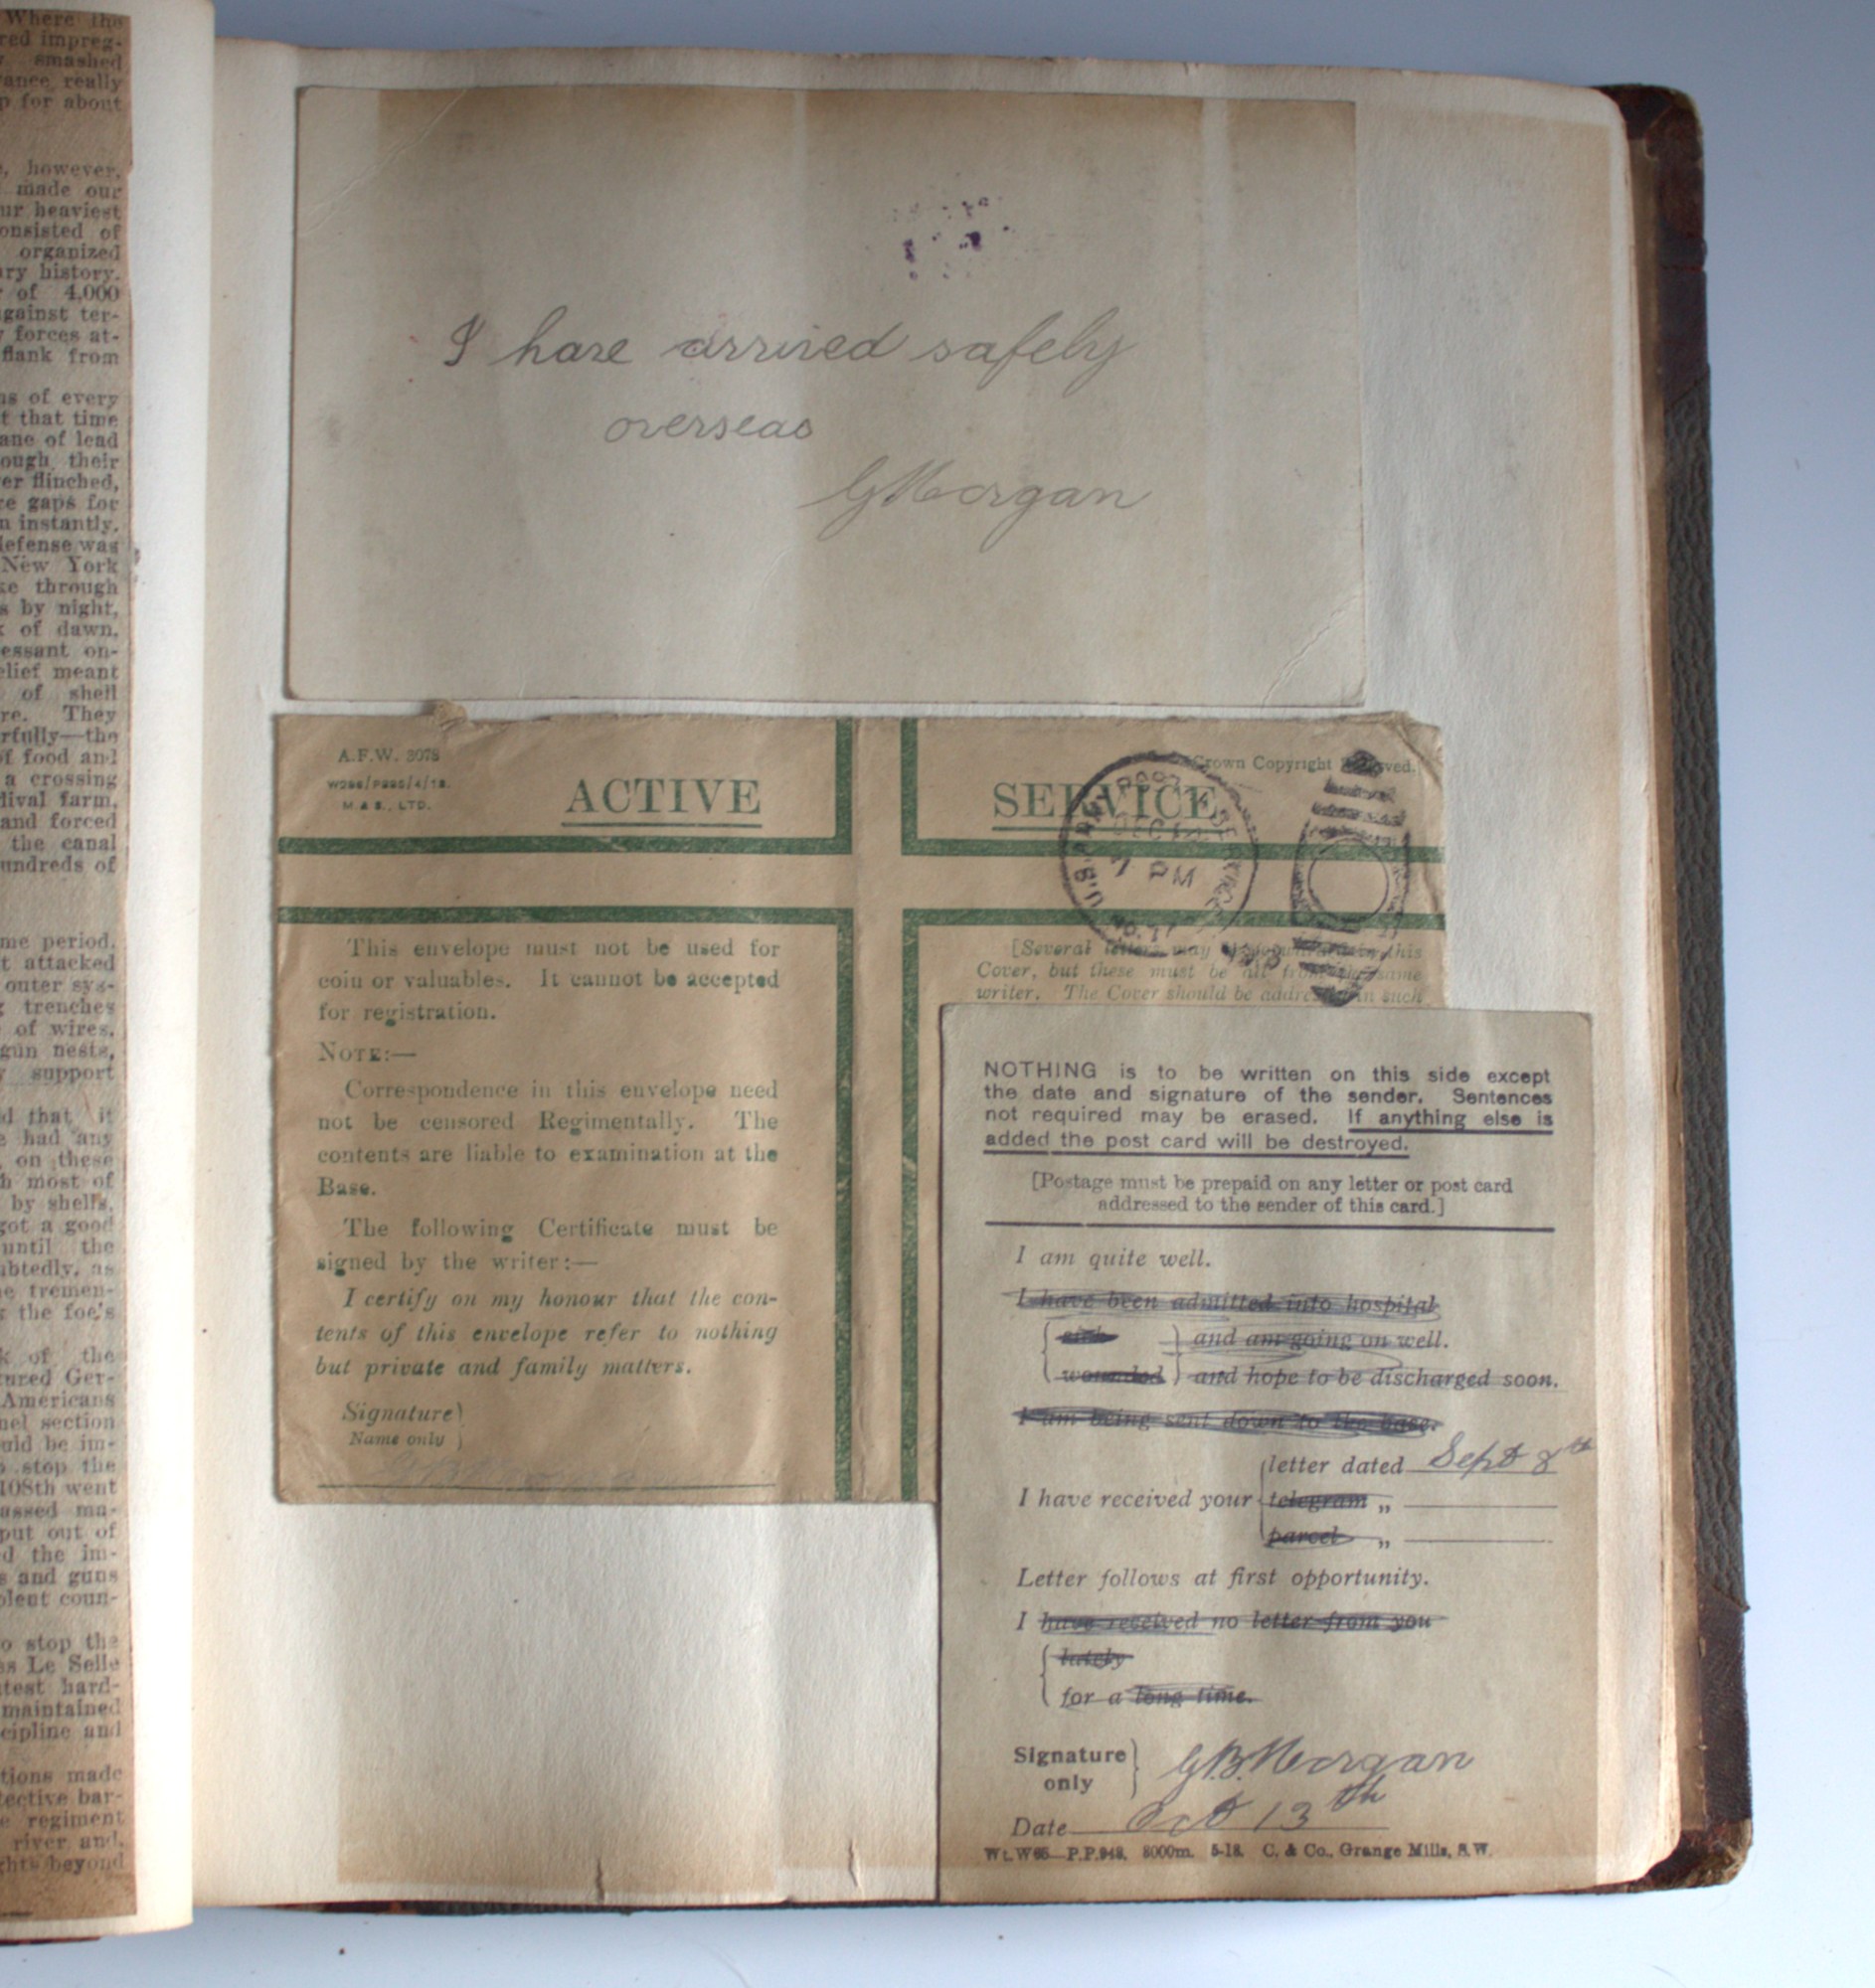 Where the
red impreg-
smashed
vance really
p for about
, however,
made our
ur heaviest
onsisted of
organized
ary history.
of 4,000
against ter-
forces at-
flank from
ns of every
t that time
ane of lead
ough their
er flinched,
re gaps for
n instantly.
defense was
New York
ke through
s by night,
of dawn,
essant on-
elief meant
of shell
re. They
rfully—the
of food and
a crossing
dival farm,
and forced
the canal
undreds of
me period.
t attacked
outer sys-
trenches
of wires,
gun nests,
support
d that it
e had any
on these
h most of
by shells.
got a good
until the
ubtedly, as
e tremen-
the foe's
k of the
tured Ger-
Americans
nel section
uld be im-
o stop the
108th went
assed ma-
put out of
d the im-
s and guns
olent coun-
o stop the
es Le Selle
test hard-
maintained
cipline and
tions made
tective bar-
e regiment
river and,
ghts beyond
I have arrived safely
overseas
GMorgan
A.F.W. 3078
W296/P995/4/18.
M.A.S., LTD.
Crown Copyright
ACTIVE SERVICE
U.S. ARMY POST OFFICE
DEC
7 PM
This envelope must not be used for
coin or valuables. It cannot be accepted
for registration.
NOTE:—
Correspondence in this envelope need
not be censored Regimentally. The
contents are liable to examination at the
Base.
The following Certificate must be
signed by the writer:—
I certify on my honour that the con-
tents of this envelope refer to nothing
but private and family matters.
Signature
Name only
[Several letters may this
Cover, but these must be all from the same
writer. The Cover should be addressed in such
NOTHING is to be written on this side except
the date and signature of the sender. Sentences
not required may be erased. If anything else is
added the post card will be destroyed.
[Postage must be prepaid on any letter or post card
addressed to the sender of this card.]
I am quite well.
I have been admitted into hospital
sick and am going on well.
wounded and hope to be discharged soon.
I am being sent down to the base.
letter dated Sept 8th
I have received your telegram „
parcel „
Letter follows at first opportunity.
I have received no letter from you
lately
for a long time.
Signature
only
G.B.Morgan
Date Oct 13th
Wt. W65—P.P.948. 8000m. 5-18. C. & Co., Grange Mills, S.W.